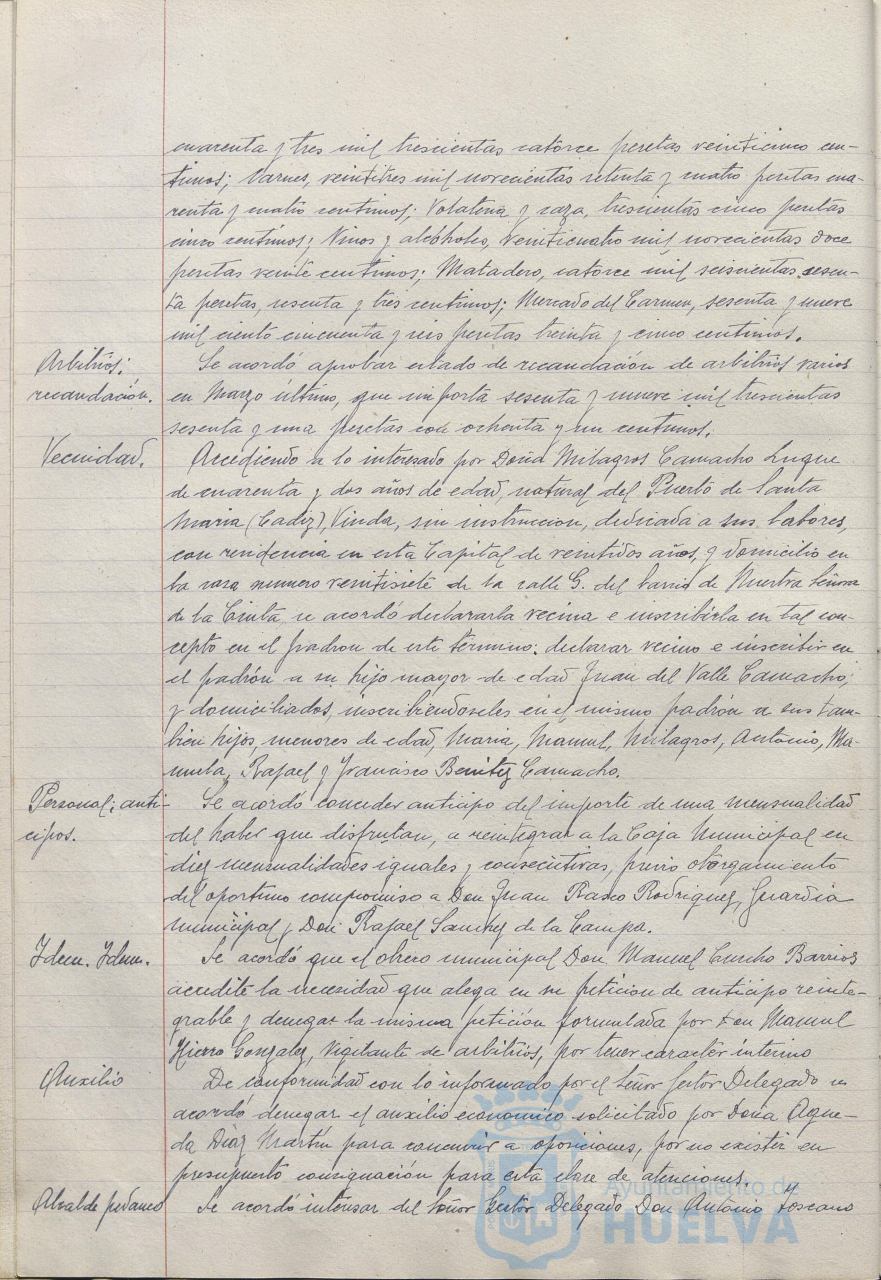 cuarenta y tres mil trescientas catorce pesetas veinticinco cen-
timos; Carnes, veintitres mil novecientas setenta y cuatro pesetas cua-
renta y cuatro centimos; Volateria y caza, trescientas cinco pesetas
cinco centimos; Vinos y alcoholes, veinticuatro mil novecientas doce
pesetas veinte centimos; Matadero, catorce mil seiscientas sesen-
ta pesetas, sesenta y tres centimos; Mercado del Carmen, sesenta y nueve
mil ciento cincuenta y seis pesetas treinta y cinco centimos.
Arbitrios:
recaudación.
Se acordó aprobar estado de recaudación de arbitrios varios
en Marzo último, que importa sesenta y nueve mil trescientas
sesenta y una pesetas con ochenta y un centimos.
Vecindad.
Accediendo a lo interesado por Doña Milagros Camacho Luque
de cuarenta y dos años de edad, natural del Puerto de Santa
Maria (Cadiz), Viuda, sin instruccion, dedicada a sus labores,
con residencia en esta Capital de veintidos años, y domicilio en
la casa numero veintisiete de la calle G. del barrio de Nuestra Señora
de la Cinta, se acordó declararla vecina e inscribirla en tal con-
cepto en el padron de este término: declarar vecino e inscribir en
el padrón a su hijo mayor de edad Juan del Valle Camacho;
y domiciliados, inscribiendoseles en el mismo padrón a sus tam-
bien hijos, menores de edad, Maria, Manuel, Milagros, Antonio, Ma-
nuela, Rafael y Francisco Benitez Camacho.
Personal: anti-
cipos.
Se acordó conceder anticipo del importe de una mensualidad
del haber que disfrutan, a reintegrar a la Caja Municipal en
diez mensualidades iguales y consecutivas, previo otorgamiento
del oportuno compromiso a Don Juan Rasco Rodriguez, Guardia
municipal y Don Rafael Sanchez de la Campa.
Idem. Idem.
Se acordó que el obrero municipal Don Manuel Barrios
acredite la necesidad que alega en su petición de anticipo reinte-
grable y denegar la misma petición formulada por Don Manuel
Hierro Gonzalez, Vigilante de arbitrios, por tener caracter interino
Auxilio
De conformidad con lo informado por el Señor Gestor Delegado se
acordó denegar el auxilio economico solicitado por Doña Ague-
da Diaz Martín para concurrir a oposiciones, por no existir en
presupuesto consignación para esta clase de atenciones.
Alcalde pedaneo
Se acordó interesar del Señor Gestor Delegado Don Antonio Toscano
Ayuntamiento de
HUELVA